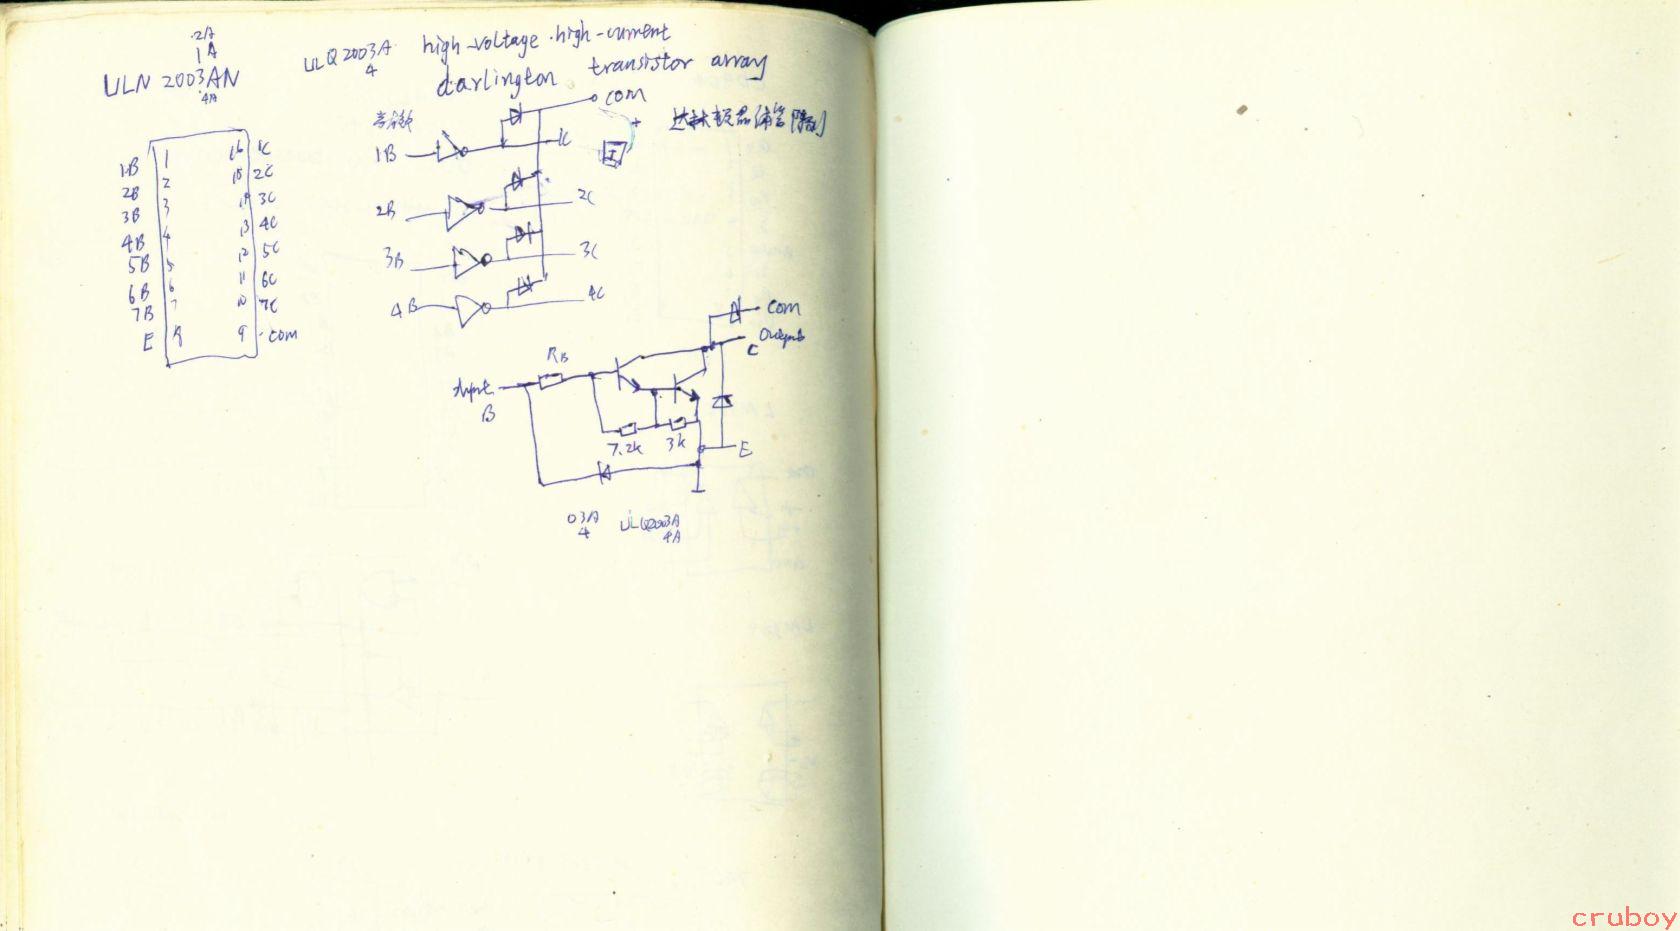 2A
1A
ULN 2003AN
4A
ULQ2003A
4
high-voltage. high-current
darlington transistor array
com
+
1B 1 16 1C
2B 2 15 2C
3B 3 14 3C
4B 4 13 4C
5B 5 12 5C
6B 6 11 6C
7B 7 10 7C
E 8 9 com
1B 1C
2B 2C
3B 3C
4B 4C
com
Output
C
RB
Input
B
7.2k 3k
E
03A
4
ULQ2003A
4A
cruboy